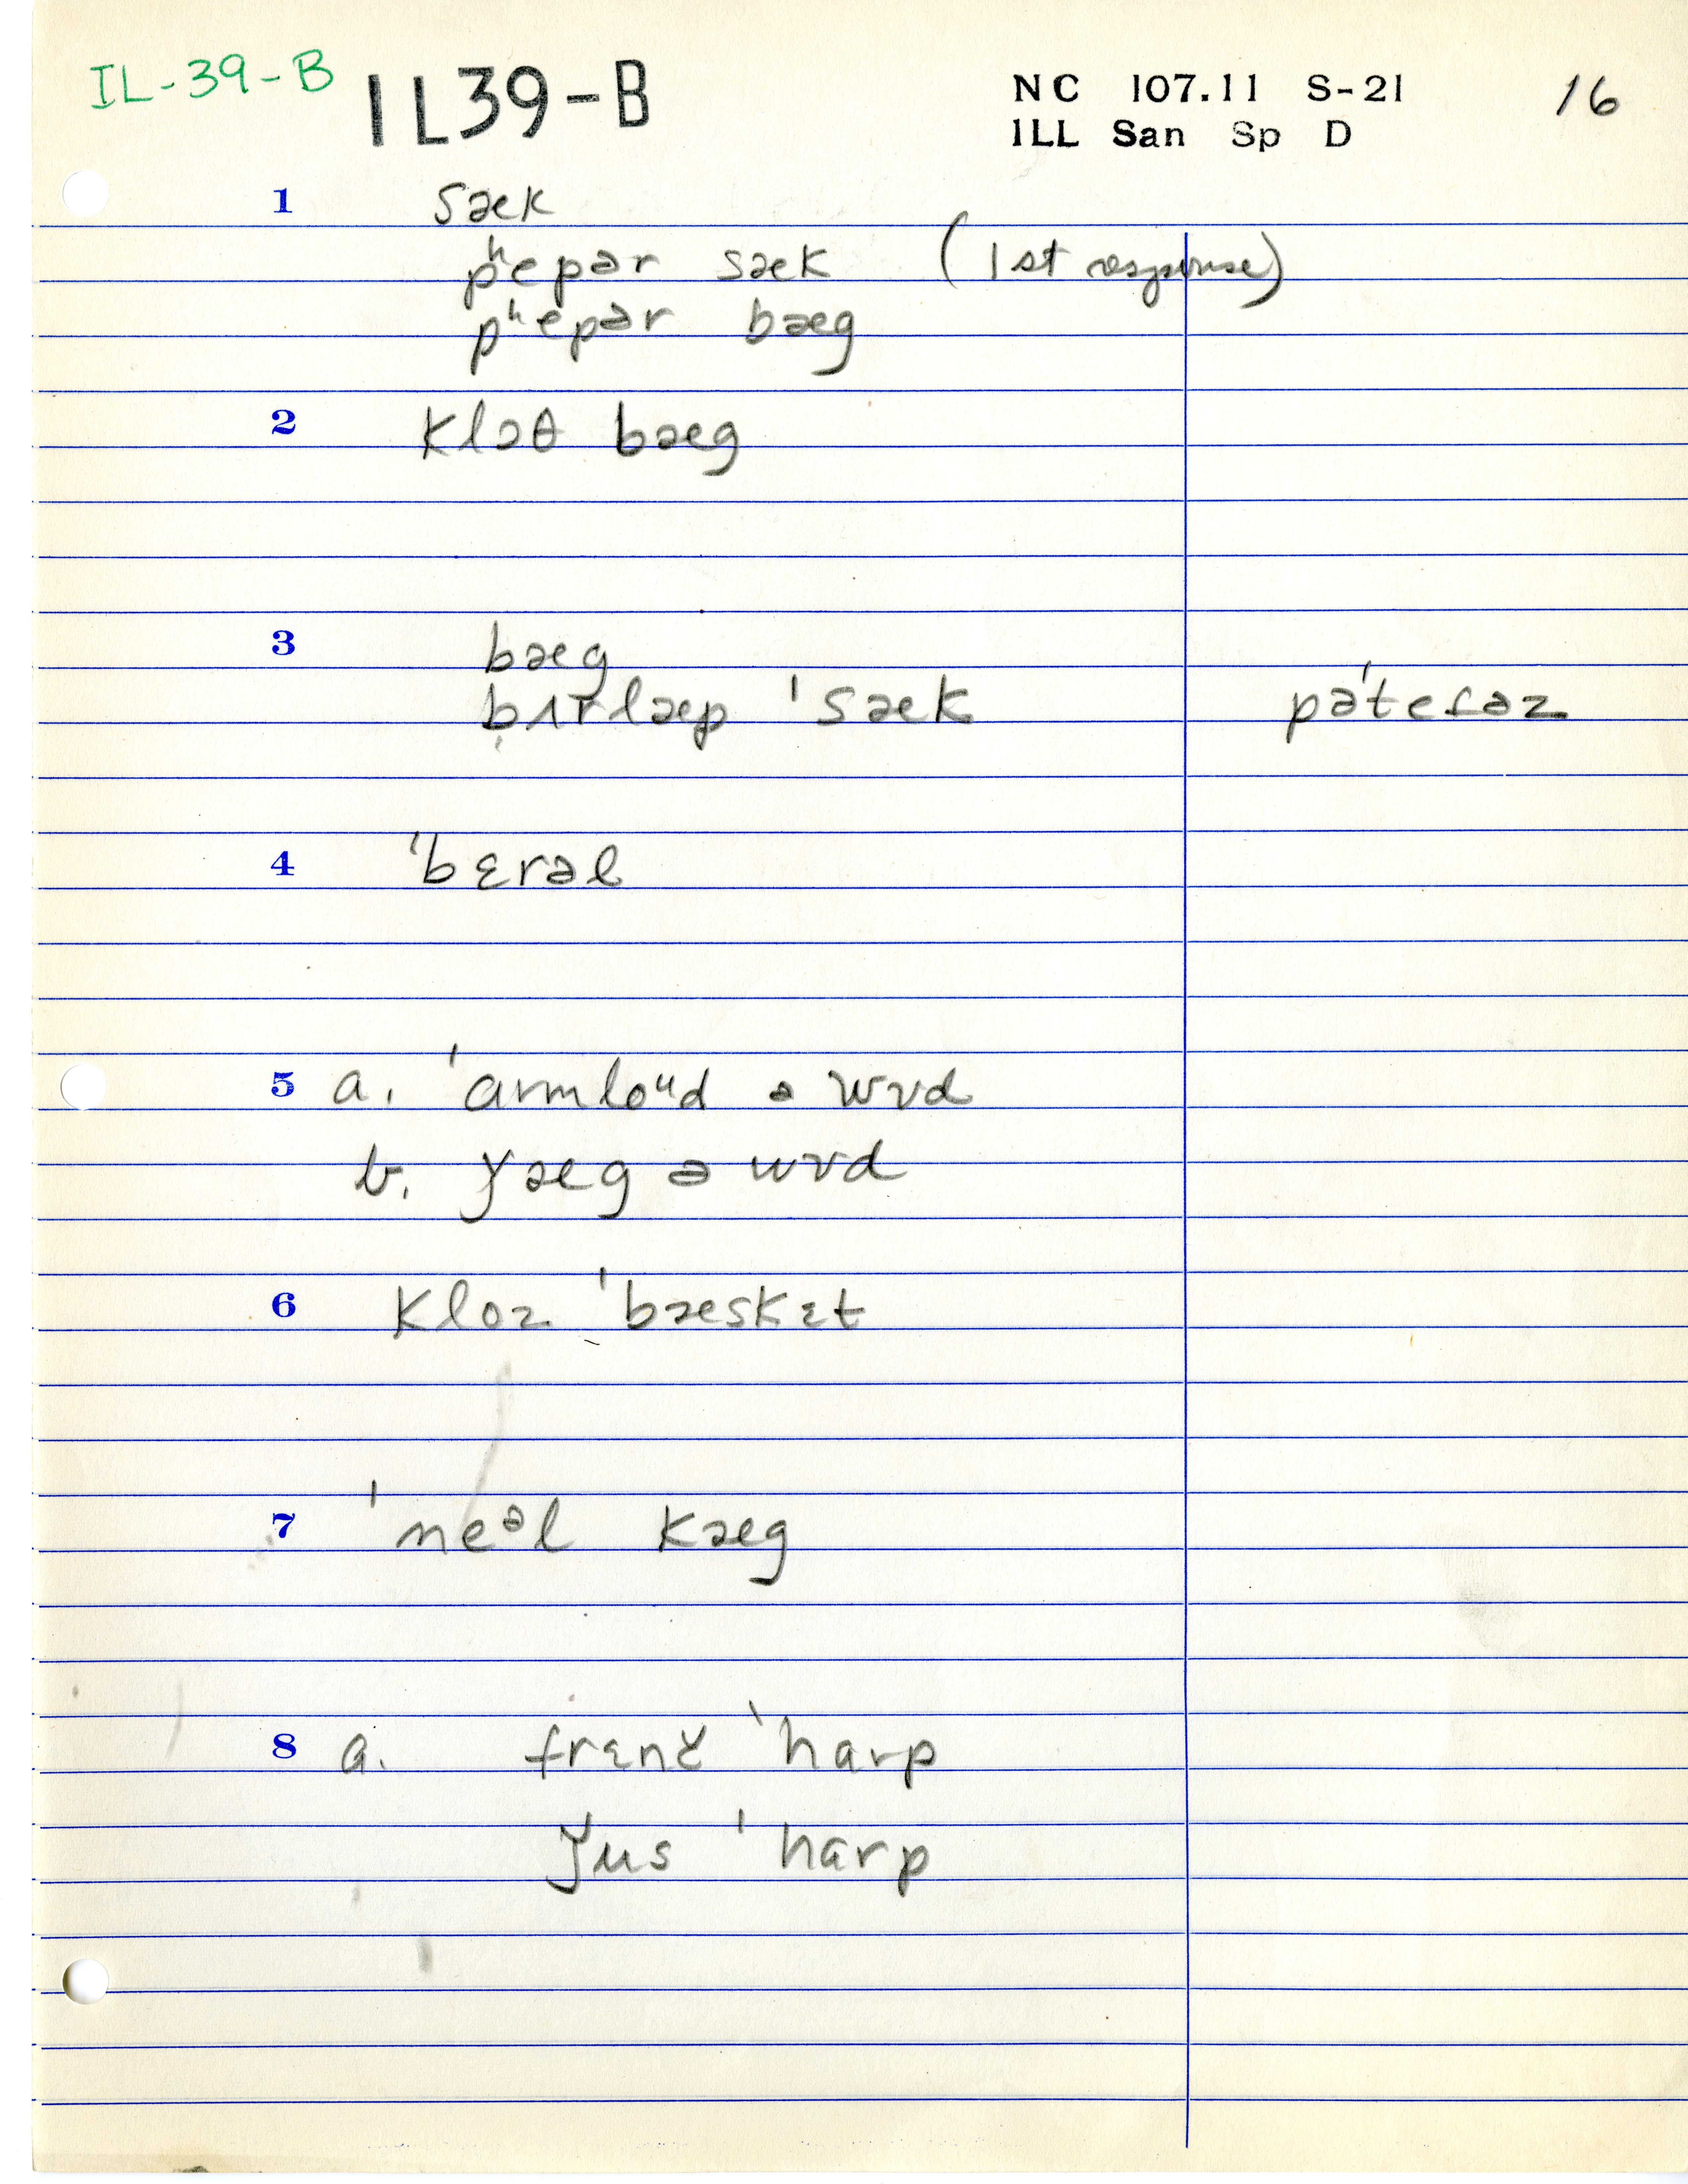 IL-39-B IL39-B NC 107.11 S-21 16
ILL San Sp D
1 sæk
pʰepər sæk (1st response)
pʰepər bæg
2 klɔθ bæg
3 bæg
bɜrlæp 'sæk pə'tetəz
4 'bɛrəl
5 a. 'armloᵘd ə wʊd
b. ǰæg ə wʊd
6 kloz 'bæskɛt
7 'neᵊl kæg
8 a. frɛnč 'harp
ǰus 'harp